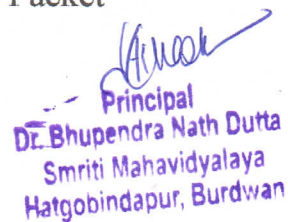 Packet
Principal
Dr. Bhupendra Nath Dutta
Smriti Mahavidyalaya
Hatgobindapur, Burdwan